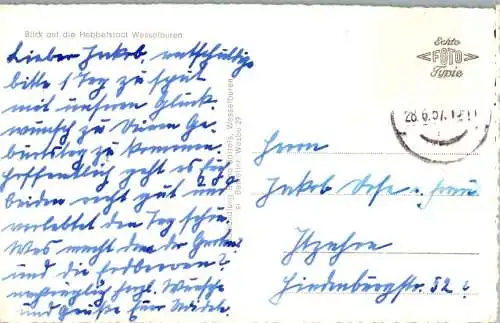 Blick auf die Hebbelstadt Wesselburen
Lieber Jakob, entschuldige
bitte 1 Tag zu spät
mit unsren Glück-
wunsch zu Deinem Ge-
burtstag zu kommen.
Hoffentlich geht es Euch
beiden recht gut und
verlebtet den Tag schön.
Was macht denn der Garten
und die Erdbeeren?
herzl. Wünsche
und Grüße Eure
Echte
FOTO
Typie
28.6.57.
Wesselburen
Herrn
Jakob u. Frau
Itzehoe
Hindenburgstr. 52